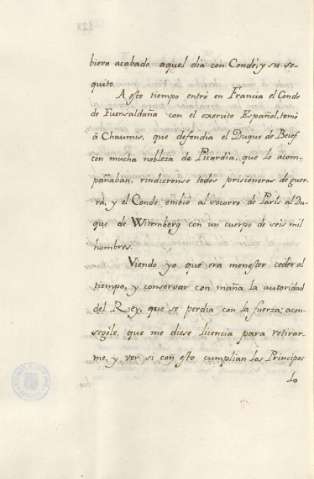 biera acabado aquel dia con Condè, y su se-
quito.
A este tiempo entrò en Francia el Conde
de Fuensaldaña con el exercito Español, tomò
à Chaumis, que defendia el Duque de
con mucha nobleza de Picardia, que lo acom-
pañaban, rindieronse todos prisioneros de guer-
ra, y el Conde embiò al socorro de Paris al Du-
que de Witemberg con un cuerpo de seis mil
hombres.
Viendo yo que era menester ceder al
tiempo, y conservar con maña la autoridad
del Rey, que se perdia con la fuerza; acon-
segèle, que me diese licencia para retirar-
me, y ver si con esto cumplian los Principes
lo